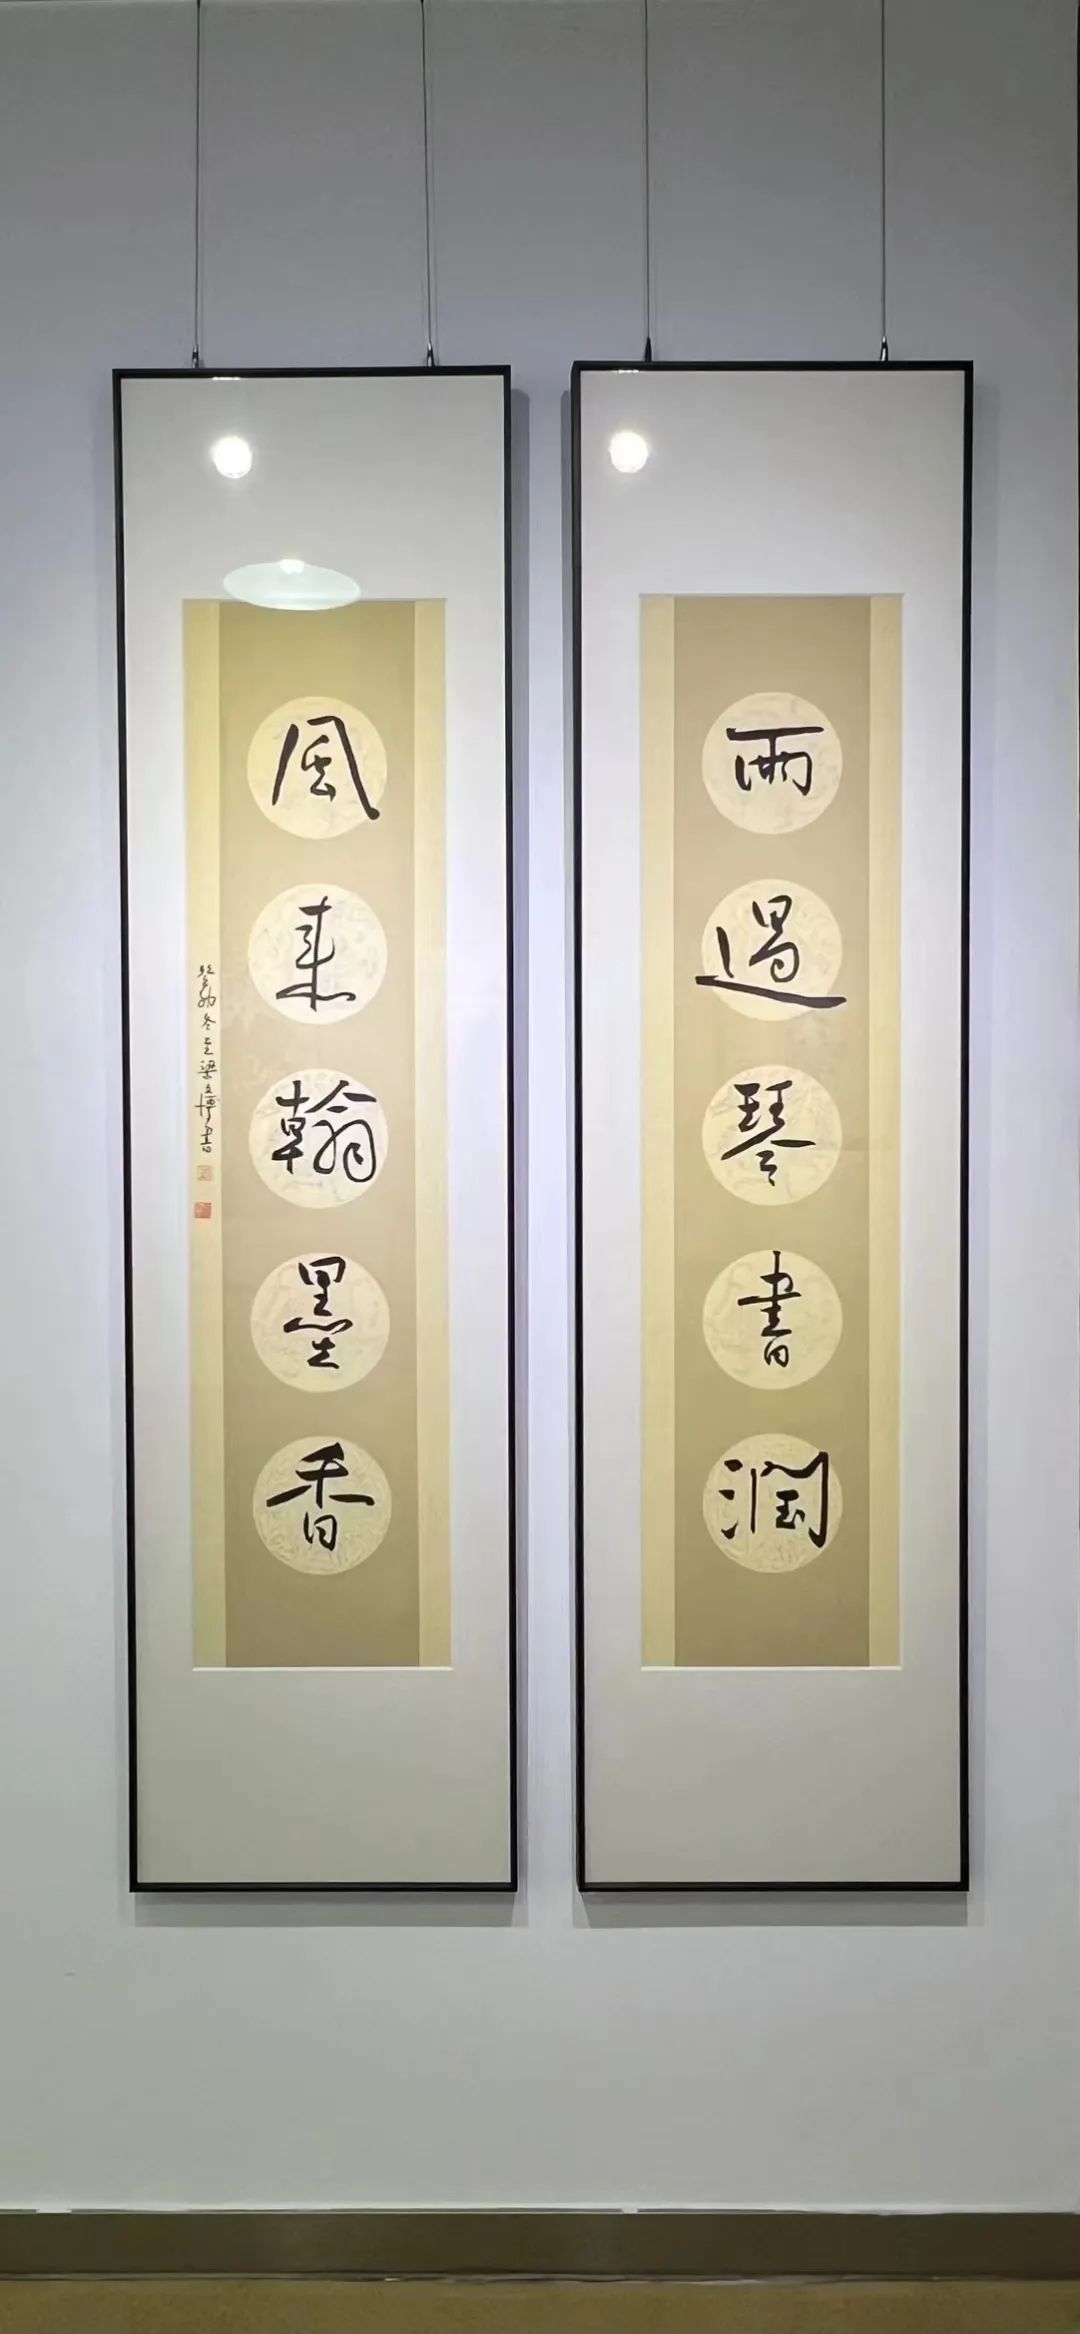 雨過琴書潤
風來翰墨香
癸卯冬至梁文博書